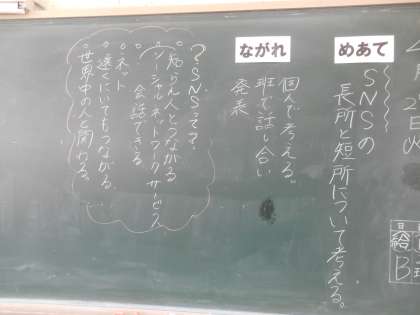 めあて
SNSの
長所と短所について考える。
ながれ
個人で考える。
班で話し合い
発表
?SNSって?
・知らん人とつながる
ソーシャルネットワークサービス
・会話できる
・ネット
・遠くにいてもつながる
・世界中の人と関わる。
日
給
B